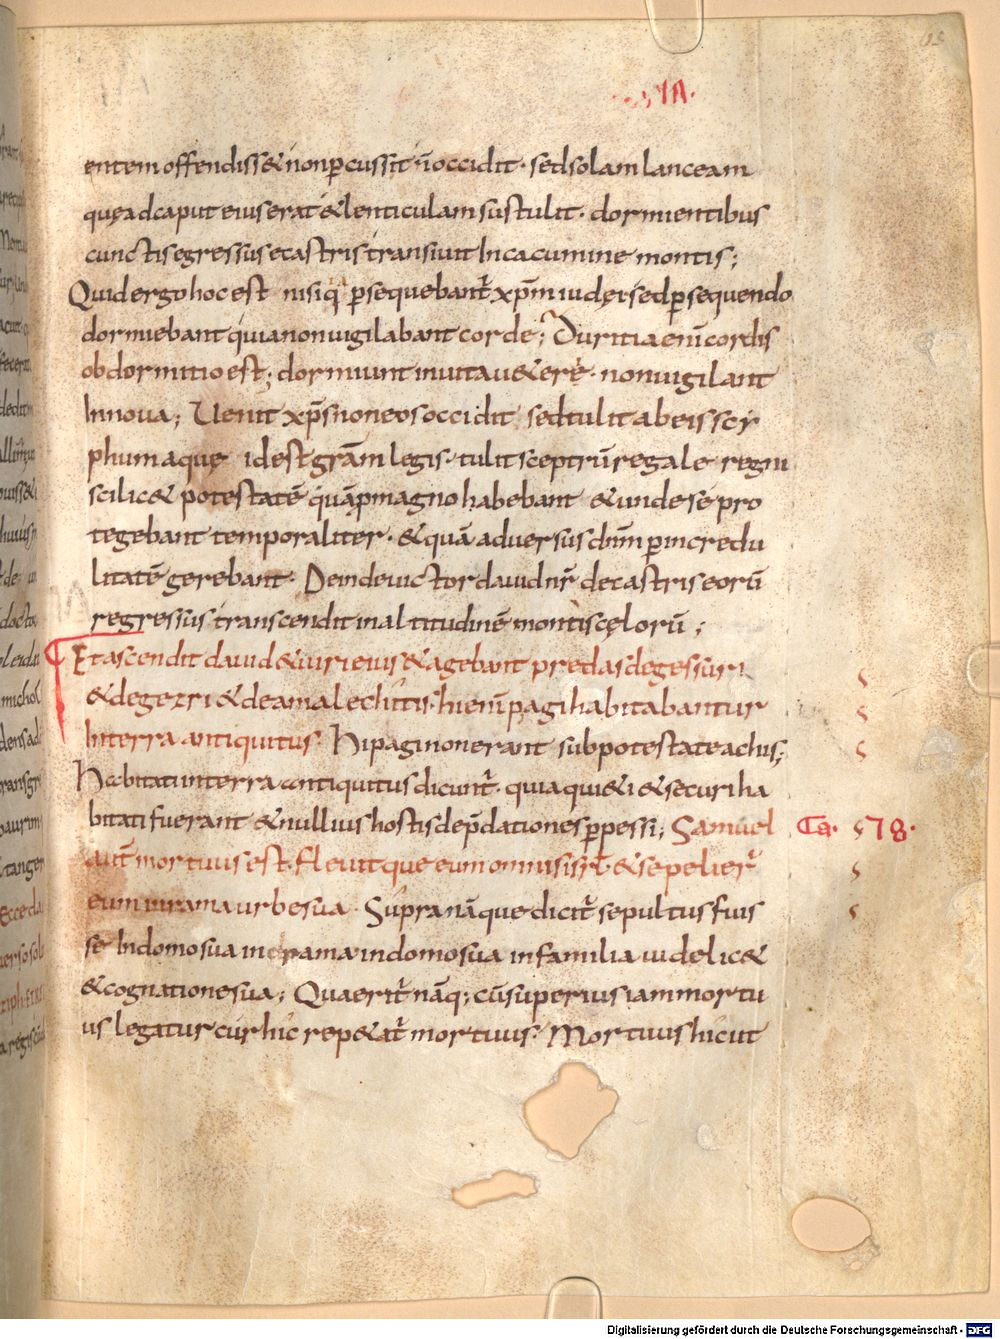 entem offendiss& nonp̱cussit n̄occidit · sedsolam lanceam
quęadcaput eius erat &lenticulam sustulit · dormientibus
cunctisegressus ecastris transiuit Incacumine montis ;
Quidergohocest nisiq̇ p̱sequebant᷑ xp̄m iudęi sedp̱sequendo
dormiebant quianonuigilabant corde ; Duritia eni᷑ cordis
obdormitio est ; dormiunt inuitau&ere᷑ · nonuigilant
Innoua ; Uenit xp̄s noneos occidit sedtulit abeis scy
phum aque idest gr̄am legis · tulit sceptrū regale regni
scilic& potestatē quāp̱magno habebant &undesē pro
tegebant temporaliter · &quā aduersus dn̄m p̱incredu
litatē gerebant · Deindeuictor dauid nr̄ decastris eorū
regressus transcendit inaltitudinē montis cęlorū ;
Etascendit dauid &uiri eius &agebant predas degessuri
&degezri &deamalechitis · hieni᷑ pagihabitabantur
Interra antiquitus · Hipagi nonerant subpotestate achis ;
Habitati interra antiquitus dicunt᷑ · quia qui&i &securi ha
bitati fuerant &nullius hostis dep̄dationes p̱pessi ; Samuel
Ca. 578.
aut᷑ mortuus est · fleuit que eum omnis isrl̄ &sepelier᷑
eum inrama urbe sua · Supra nāque dicit᷑ sepultus fuis
sē Indomosua in rama indomosua infamilia uidelic&
&cognationesua ; Quaerit᷑ nāq; cū superius iam mortu
us legatur cur hic rep&at᷑ mortuus · Mortuus hicut
Digitalisierung gefördert durch die Deutsche Forschungsgemeinschaft - DFG